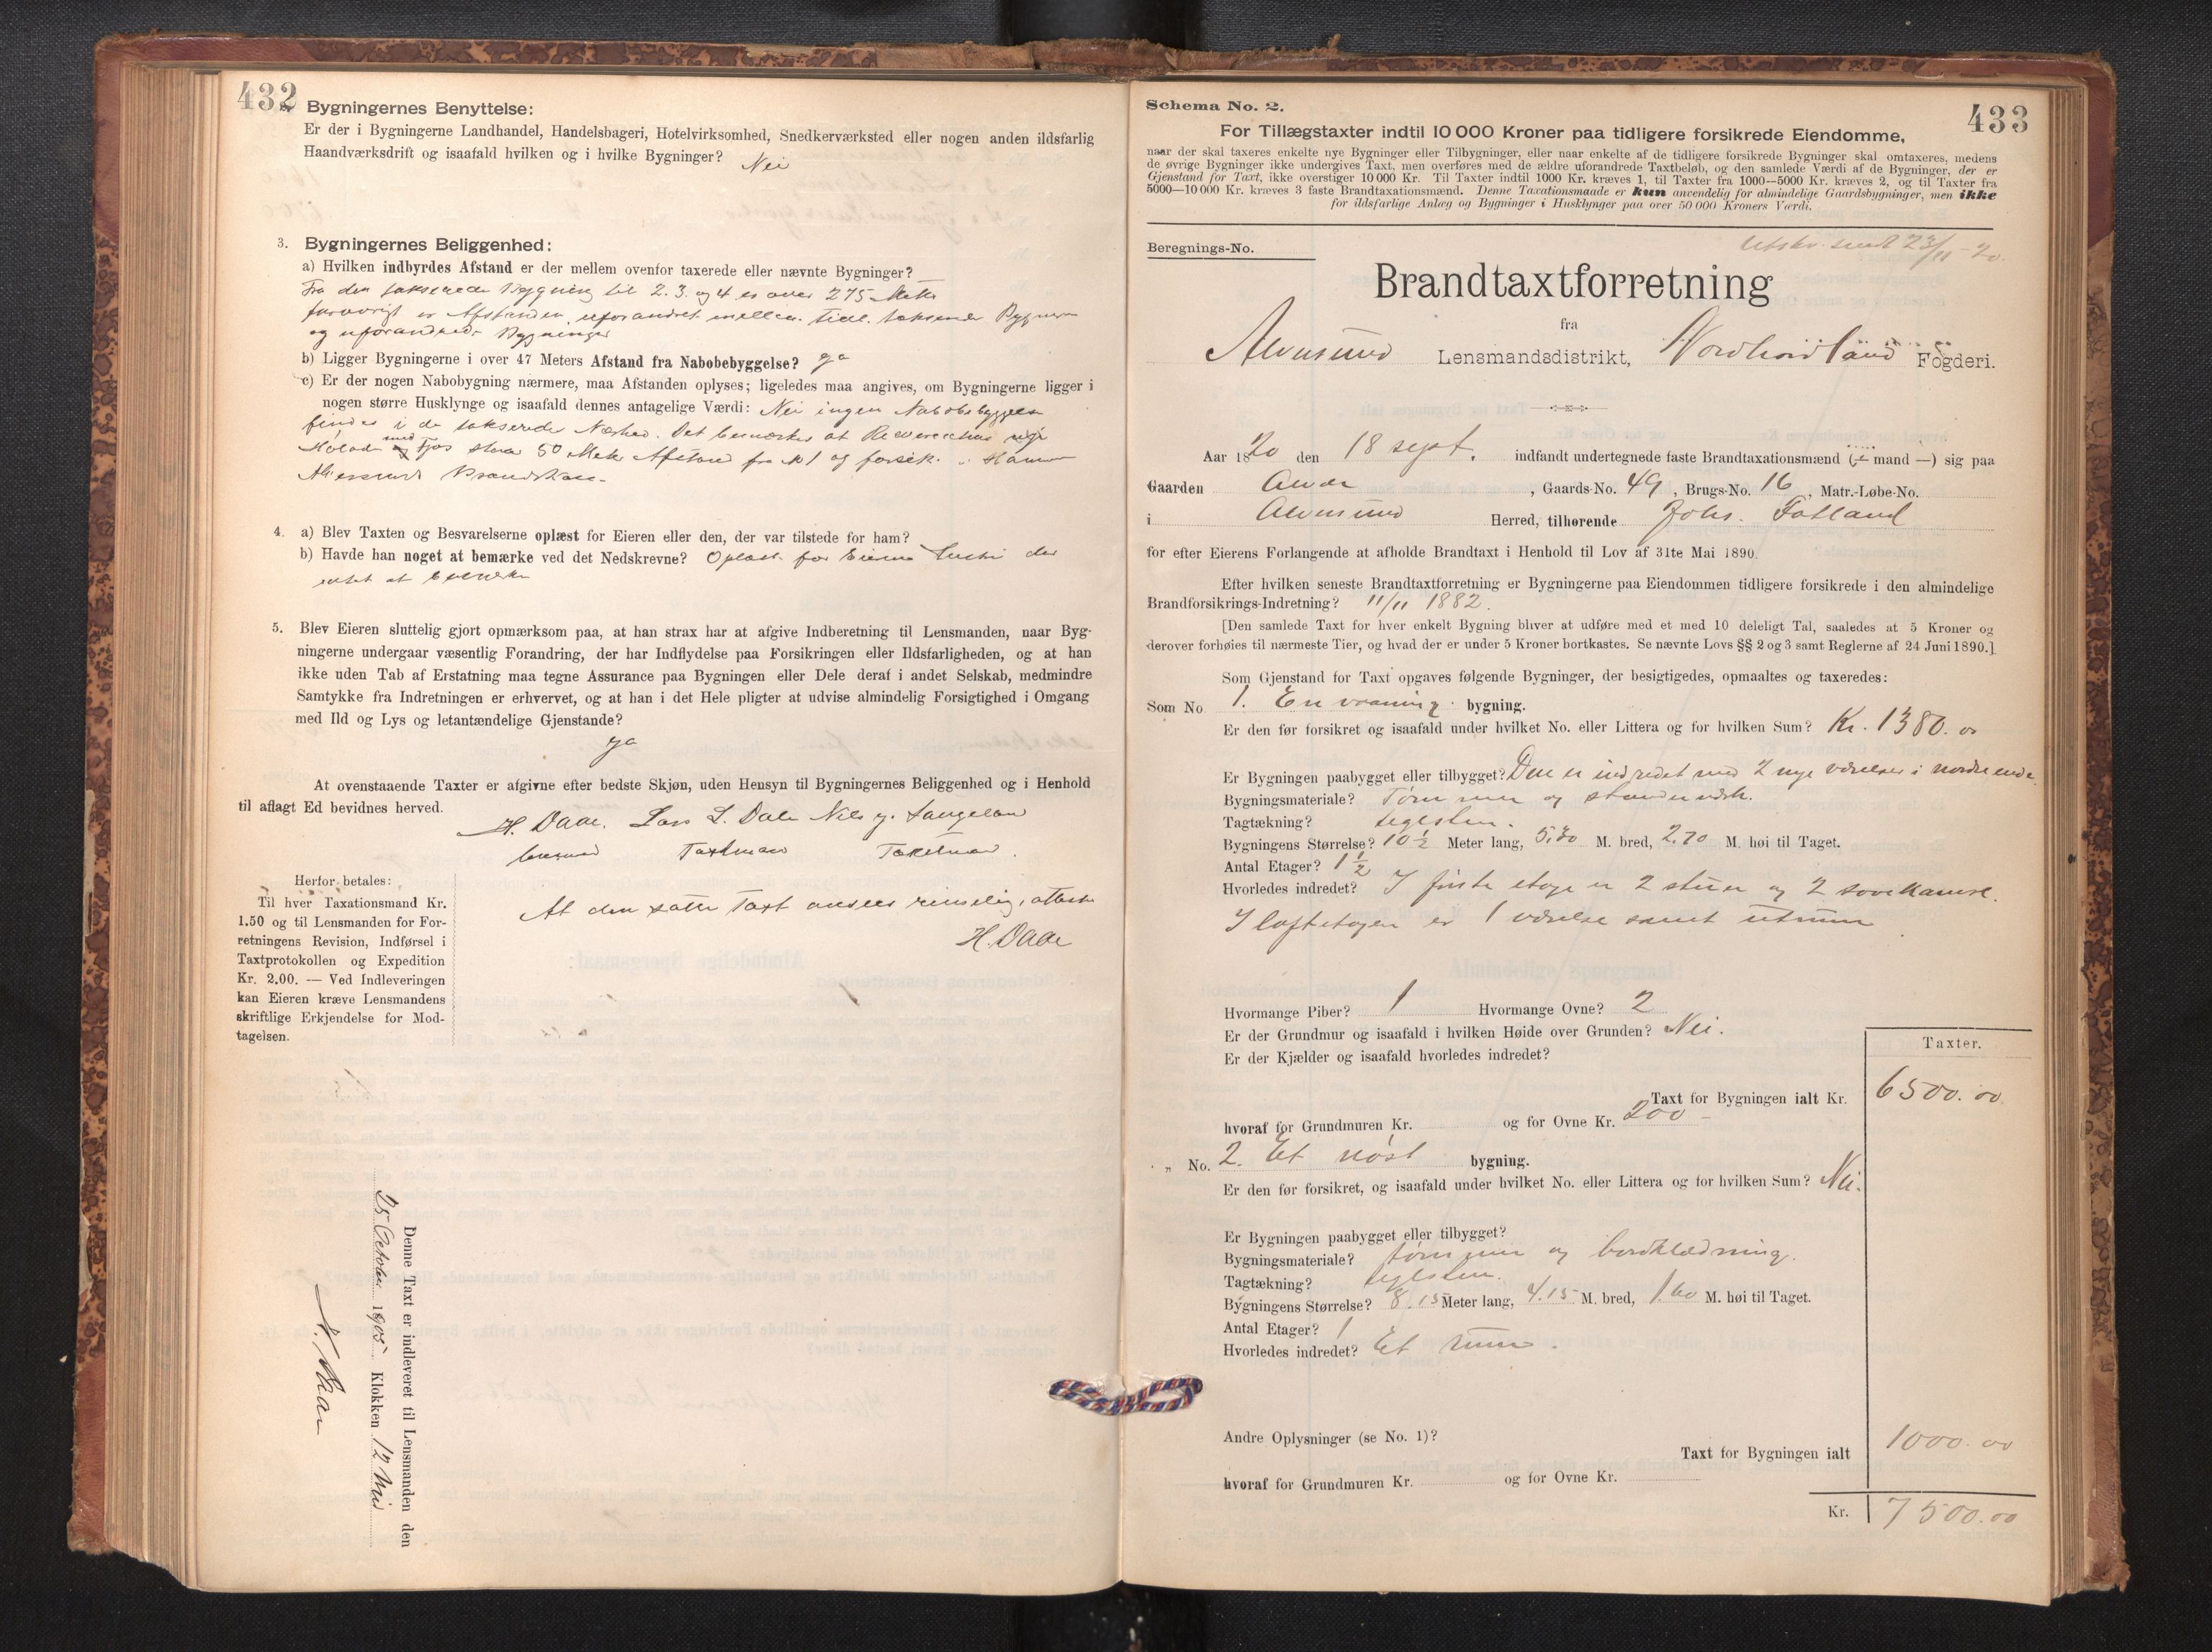 432
Bygningernes Benyttelse:
Er der i Bygningerne Landhandel, Handelsbageri, Hotelvirksomhed, Snedkerværksted eller nogen anden ildsfarlig
Haandværksdrift og isaafald hvilken og i hvilke Bygninger? Nei
3. Bygningernes Beliggenhed:
a) Hvilken indbyrdes Afstand er der mellem ovenfor taxerede eller nævnte Bygninger?
Fra den takserede Bygning til 2. 3. og 4 er over 275 Meter
forøvrigt er Afstanden uforandret mellem tidl. takserede Bygninger
og uforandrede Bygninger
b) Ligger Bygningerne i over 47 Meters Afstand fra Nabobebyggelse? ja
c) Er der nogen Nabobygning nærmere, maa Afstanden oplyses; ligeledes maa angives, om Bygningerne ligger i
nogen større Husklynge og isaafald dennes antagelige Værdi: Nei ingen Nabobebyggelse
findes i de takserede Nærhed. Det bemærkes at
med Fjøs 50 Meter Afstand fra N 1 og forsik.
Brandkasse
4. a) Blev Taxten og Besvarelserne oplæst for Eieren eller den, der var tilstede for ham?
b) Havde han noget at bemærke ved det Nedskrevne? Oplæst for Eierens Hustru der
intet at bemerke
5. Blev Eieren sluttelig gjort opmærksom paa, at han strax har at afgive Indberetning til Lensmanden, naar Byg-
ningerne undergaar væsentlig Forandring, der har Indflydelse paa Forsikringen eller Ildsfarligheden, og at han
ikke uden Tab af Erstatning maa tegne Assurance paa Bygningen eller Dele deraf i andet Selskab, medmindre
Samtykke fra Indretningen er erhvervet, og at han i det Hele pligter at udvise almindelig Forsigtighed i Omgang
med Ild og Lys og letantændelige Gjenstande?
ja
At ovenstaaende Taxter er afgivne efter bedste Skjøn, uden Hensyn til Bygningernes Beliggenhed og i Henhold
til aflagt Ed bevidnes herved.
H. Daae. Lars L. Dale Nils J.
Lensmand Taxtmand Taxtmand.
Herfor betales:
Til hver Taxationsmand Kr.
1.50 og til Lensmanden for For-
retningens Revision, Indførsel i
Taxtprotokollen og Expedition
Kr. 2.00. — Ved Indleveringen
kan Eieren kræve Lensmandens
skriftlige Erkjendelse for Mod-
tagelsen.
At den satte Taxt ansees rimelig, attest
H. Daae
Denne Taxt er indleveret til Lensmanden den
25 October 1905 Klokken 12 Mid
433
Schema No. 2.
For Tillægstaxter indtil 10 000 Kroner paa tidligere forsikrede Eiendomme,
naar der skal taxeres enkelte nye Bygninger eller Tilbygninger, eller naar enkelte af de tidligere forsikrede Bygninger skal omtaxeres, medens
de øvrige Bygninger ikke undergives Taxt, men overføres med de ældre uforandrede Taxtbeløb, og den samlede Værdi af de Bygninger, der er
Gjenstand for Taxt, ikke overstiger 10 000 Kr. Til Taxter indtil 1000 Kr. kræves 1, til Taxter fra 1000—5000 Kr. kræves 2, og til Taxter fra
5000—10 000 Kr. kræves 3 faste Brandtaxationsmænd. Denne Taxationsmaade er kun anvendelig for almindelige Gaardsbygninger, men ikke
for ildsfarlige Anlæg og Bygninger i Husklynger paa over 50 000 Kroners Værdi.
Beregnings-No.
Utskr. sendt 23/11-20.
Brandtaxtforretning
fra
Alversund Lensmandsdistrikt, Nordhordland Fogderi.
Aar 1820 den 18 sept. indfandt undertegnede faste Brandtaxationsmænd (-mand —) sig paa
Gaarden Alver, Gaards-No. 49, Brugs-No. 16, Matr.-Løbe-No.
i Alversund Herred, tilhørende Johs. Fatland
for efter Eierens Forlangende at afholde Brandtaxt i Henhold til Lov af 31te Mai 1890.
Efter hvilken seneste Brandtaxtforretning er Bygningerne paa Eiendommen tidligere forsikrede i den almindelige
Brandforsikrings-Indretning? 11/11 1882.
[Den samlede Taxt for hver enkelt Bygning bliver at udføre med et med 10 deleligt Tal, saaledes at 5 Kroner og
derover forhøies til nærmeste Tier, og hvad der er under 5 Kroner bortkastes. Se nævnte Lovs §§ 2 og 3 samt Reglerne af 24 Juni 1890.]
Som Gjenstand for Taxt opgaves følgende Bygninger, der besigtigedes, opmaaltes og taxeredes:
Som No. 1. En vaaning bygning.
Er den før forsikret og isaafald under hvilket No. eller Littera og for hvilken Sum? Kr. 1380.00
Er Bygningen paabygget eller tilbygget? Den er indredet med 2 nye værelser i nordre ende
Bygningsmateriale? Tømmer og standerverk.
Tagtækning? teglsten.
Bygningens Størrelse? 10 ½ Meter lang, 5.30 M. bred, 2.70 M. høi til Taget.
Antal Etager? 1 ½
Hvorledes indredet? I første etage er 2 stuer og 2 sovekamre.
I loftetagen er 1 værelse samt utrum
Hvormange Piber? 1 Hvormange Ovne? 2
Er der Grundmur og isaafald i hvilken Høide over Grunden? Nei.
Er der Kjælder og isaafald hvorledes indredet?
Taxter.
Taxt for Bygningen ialt Kr. 6500.00
hvoraf for Grundmuren Kr. og for Ovne Kr. 200 -
" No. 2. Et nøst bygning.
Er den før forsikret, og isaafald under hvilket No. eller Littera og for hvilken Sum? Nei.
Er Bygningen paabygget eller tilbygget?
Bygningsmateriale? tømmer og bordklædning.
Tagtækning? teglsten.
Bygningens Størrelse? 8.15 Meter lang, 4.15 M. bred, 1.60 M. høi til Taget.
Antal Etager? 1
Hvorledes indredet? Et rum.
Andre Oplysninger (se No. 1)?
Taxt for Bygningen ialt 1000.00
hvoraf for Grundmuren Kr. og for Ovne Kr.
Kr. 7500.00